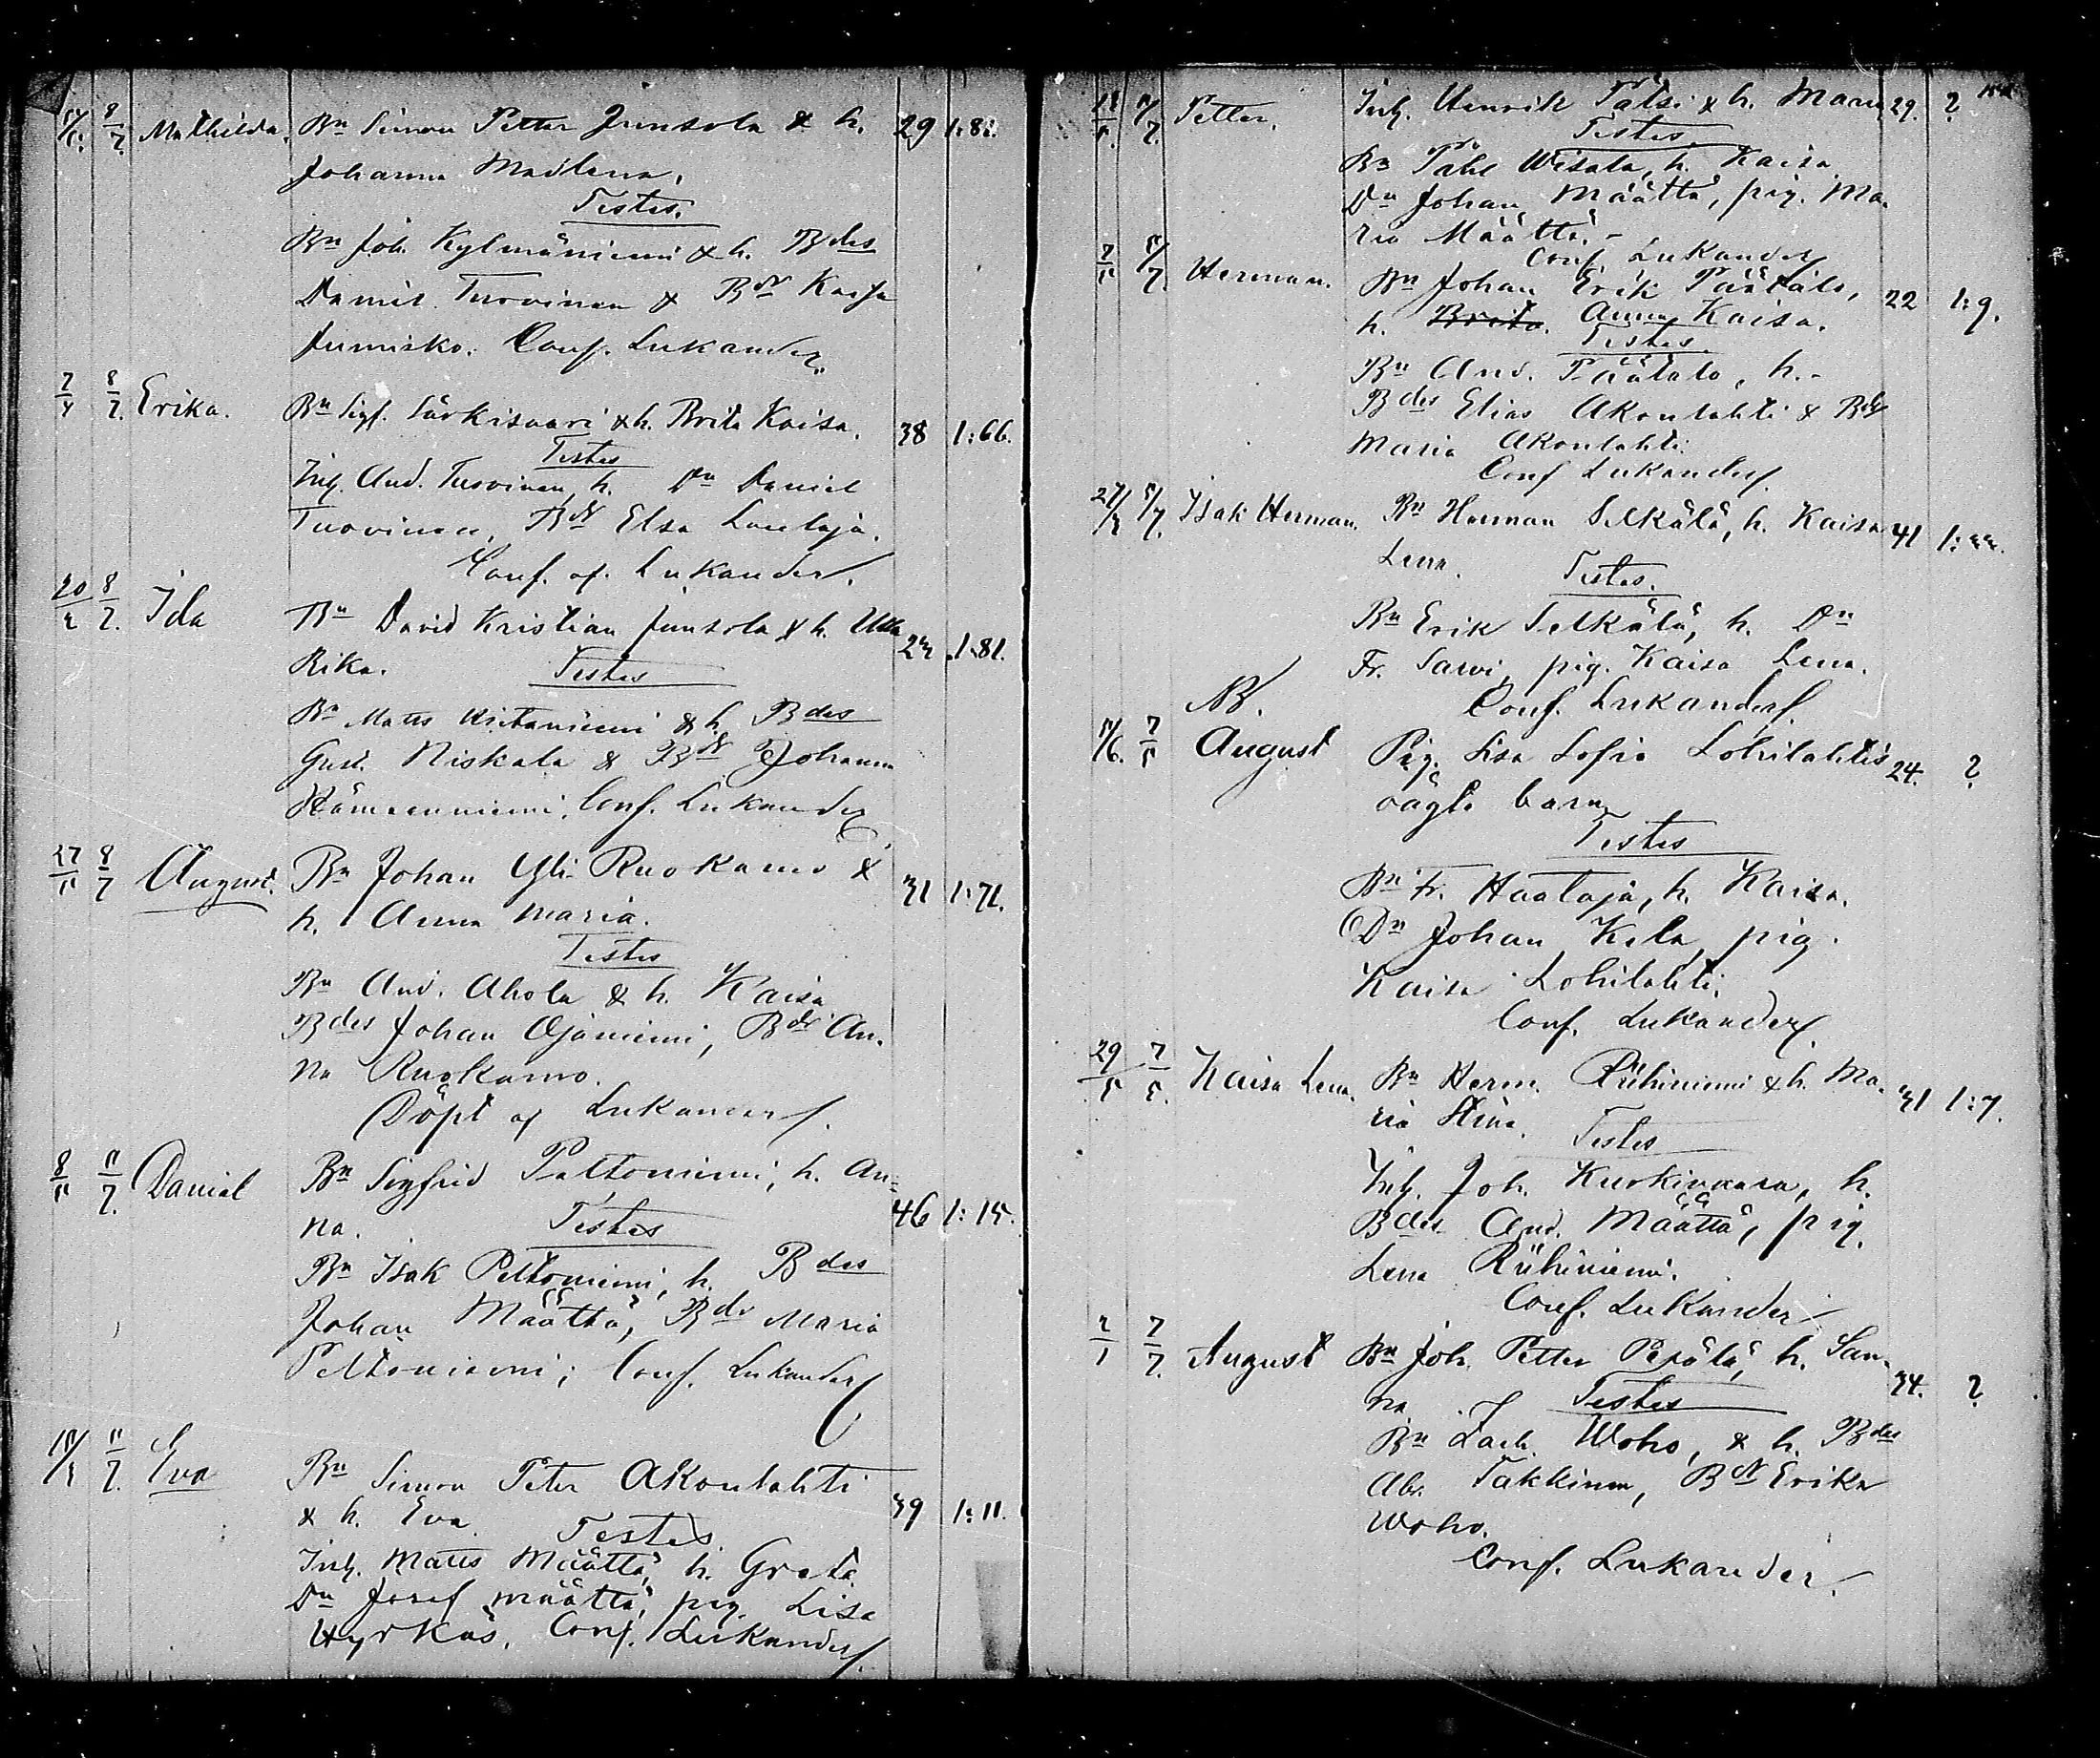 8/7. Mathilda. Bn Simon Petter Junsola & h. 29 1:81.
Johanna Madlena.
Testes.
Bn Joh. Kylmäniemi & h. Bdes
Daniel Tuovinen & Bdr Kaisa
Jumisko. Conf. Lukander.
8/7. Erika. Bn Sigf. Särkisaari & h. Brita Kaisa. 38 1:66.
Testes
Inh. And. Tuovinen, h. Dn Daniel
Tuovinen, Bdr Elsa Lautaja.
Conf. af Lukander.
8/7. Ida Bn David Kristian Junsola & h. Ulla 23 1:81.
Rika. Testes
Bn Matts & h. Bdes
Gust. Niskala & Bdr Johanna
Hämeenniemi. Conf. Lukander
27/5 8/7 August. Bn Johan Yli-Ruokamo & 31 1:71.
h. Anna Maria.
Testes
Bn And. Ahola & h. Kaisa
Bdes Johan Ojaniemi, Bdr An-
na Ruokamo.
Döpt af Lukander.
8/5 11/7. Daniel Bn Sigfrid Peltoniemi, h. An- 46 1:15.
na. Testes
Bn Isak Peltoniemi, h. Bdes
Johan Määttä, Bdr Maria
Peltoniemi; Conf. Lukander
11/7. Eva Bn Simon Peter Akonlahti 39 1:11.
& h. Eva. Testes.
Inh. Matts Määttä, h. Greta.
Dn Josef Määttä, pig. Lisa
Hyrkäs. Conf. Lukander.
Petter. Inh. Henrik Pätsi & h. Maria 29. ?
Testes.
Bn Pahl Wisala, h. Kaisa
Dn Johan Määttä, pig. Ma-
ria Määttä.-
Conf. Lukander
Herman. Bn Johan Erik Päätalo, 22 1:9.
h. Brita. Anna Kaisa.
Testes.
Bn And. Päätalo, h.-
Bdes Elias Akonlahti & Bdr
Maria Akonlahti.
Conf Lukander.
Isak Herman. Bn Herman Selkälä, h. Kaisa 41 1:33.
Lena. Testes.
Bn Erik Selkälä, h. Dn
Fr. Sarvi, pig. Kaisa Lena.
NB. Conf. Lukander.
7/5 August Pig. Lisa Sofia Lohilahtis 24. ?
oägta barn
Testes
Bn Fr. Haataja, h. Kaisa.
Dn Johan Kela, pig.
Kaisa Lohilahti.
Conf. Lukander.
29/5 Kaisa Lena. Bn Herm. Riihiniemi & h. Ma- 31 1:7.
ria Stina. Testes
Inh. Joh. Kurkivaara, h.
Bdes And. Määttä, pig.
Lena Riihiniemi.
Conf. Lukander
7/7. August Bn Joh. Petter Perälä, h. San- 34. ?
na. Testes
Bn Zach. Woho, & h. Bdes
Abr. Takkinen, Bdr Erika
Woho.
Conf. Lukander.